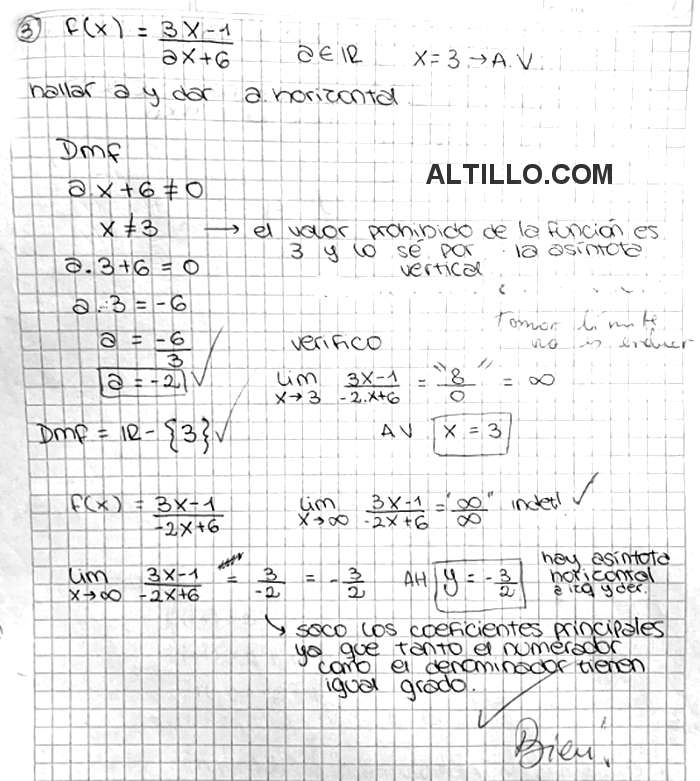 ③ f(x) = 3x-1 / ax+6   a ∈ IR   x=3 → A.V.
hallar a y dar a. horizontal
Dmf
ALTILLO.COM
a.x+6 ≠ 0
x ≠ 3 → el valor prohibido de la función es
3 y lo sé por la asíntota
vertical
a.3+6 = 0
a.3 = -6
a = -6/3
a = -2 ✓
Tomar límite
no es
verifico
lim x→3 3x-1 / -2.x+6 = "8/0" = ∞
Dmf = IR - {3} ✓
AV x = 3
f(x) = 3x-1 / -2x+6
lim x→∞ 3x-1 / -2x+6 = "∞/∞" indet! ✓
lim x→∞ 3x-1 / -2x+6 = 3/-2 = -3/2   AH y = -3/2
hay asíntota
horizontal
a izq y der.
↳ saco los coeficientes principales
ya que tanto el numerador
como el denominador tienen
igual grado.
✓
Bien!